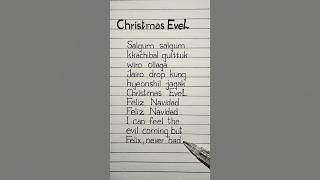 Christmas EveL
Salgum salgum
kkachibal gulttuk
wiro ollaga
Jairo drop kung
hyeonshil jagak
Christmas EveL
Feliz Navidad
Feliz Navidad
I can feel the
evil coming but
Felix, never bad